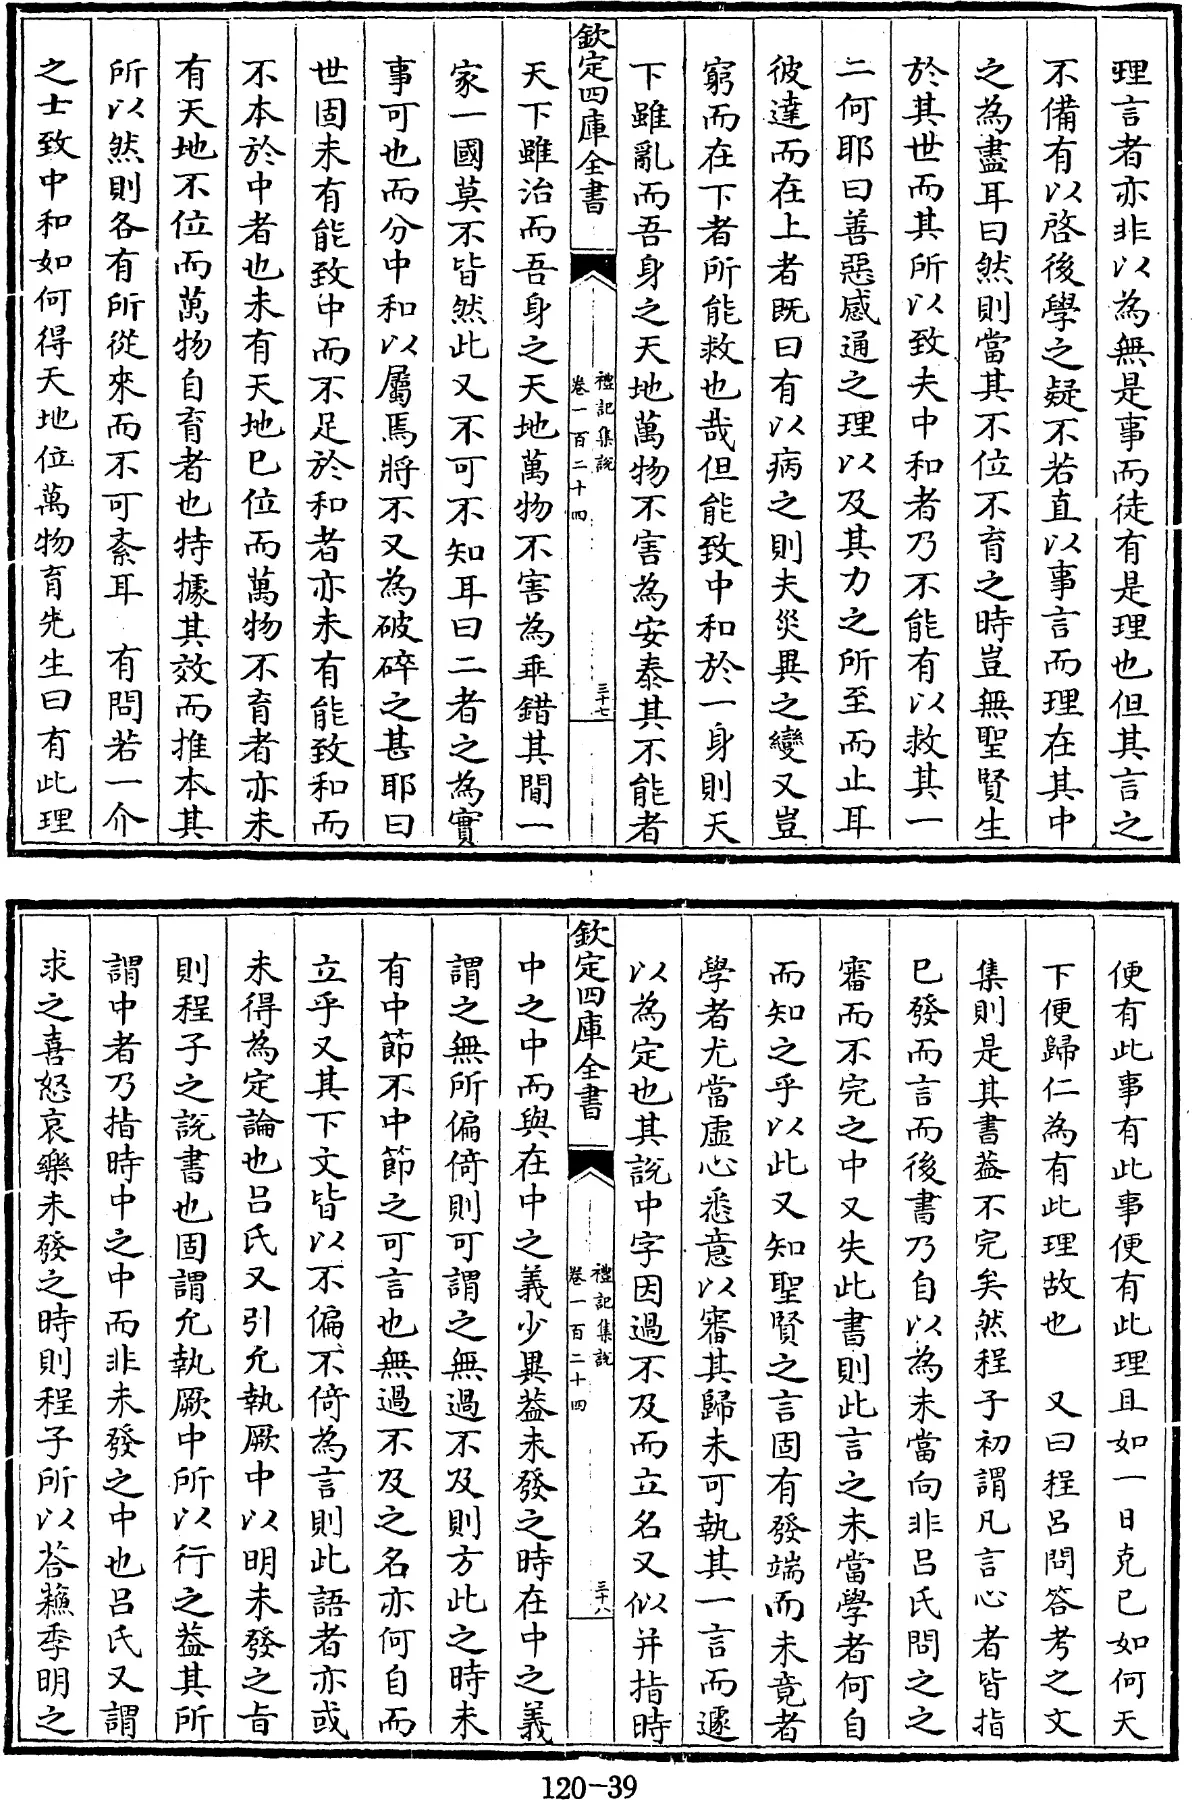 理言者亦非以為無是事而徒有是理也但其言之
不備有以啓後學之疑不若直以事言而理在其中
之為盡耳曰然則當其不位不育之時豈無聖賢生
於其世而其所以致夫中和者乃不能有以救其一
二何耶曰善惡感通之理以及其力之所至而止耳
彼達而在上者既曰有以病之則夫災異之變又豈
窮而在下者所能救也哉但能致中和於一身則天
下雖亂而吾身之天地萬物不害為安泰其不能者
欽定四庫全書
禮記集說
卷一百二十四
三十七
天下雖治而吾身之天地萬物不害為乖錯其間一
家一國莫不皆然此又不可不知耳曰二者之為實
事可也而分中和以屬焉將不又為破碎之甚耶曰
世固未有能致中而不足於和者亦未有能致和而
不本於中者也未有天地已位而萬物不育者亦未
有天地不位而萬物自育者也特據其效而推本其
所以然則各有所從來而不可紊耳 有問若一介
之士致中和如何得天地位萬物育先生曰有此理
便有此事有此事便有此理且如一日克已如何天
下便歸仁為有此理故也 又曰程呂問答考之文
集則是其書蓋不完矣然程子初謂凡言心者皆指
已發而言而後書乃自以為未當向非呂氏問之之
審而不完之中又失此書則此言之未當學者何自
而知之乎以此又知聖賢之言固有發端而未竟者
學者尤當虛心悉意以審其歸未可執其一言而遽
以為定也其說中字因過不及而立名又似并指時
欽定四庫全書
禮記集說
卷一百二十四
三十八
中之中而與在中之義少異蓋未發之時在中之義
謂之無所偏倚則可謂之無過不及則方此之時未
有中節不中節之可言也無過不及之名亦何自而
立乎又其下文皆以不偏不倚為言則此語者亦或
未得為定論也呂氏又引允執厥中以明未發之旨
則程子之說書也固謂允執厥中所以行之蓋其所
謂中者乃指時中之中而非未發之中也呂氏又謂
求之喜怒哀樂未發之時則程子所以荅蘓季明之
120-39